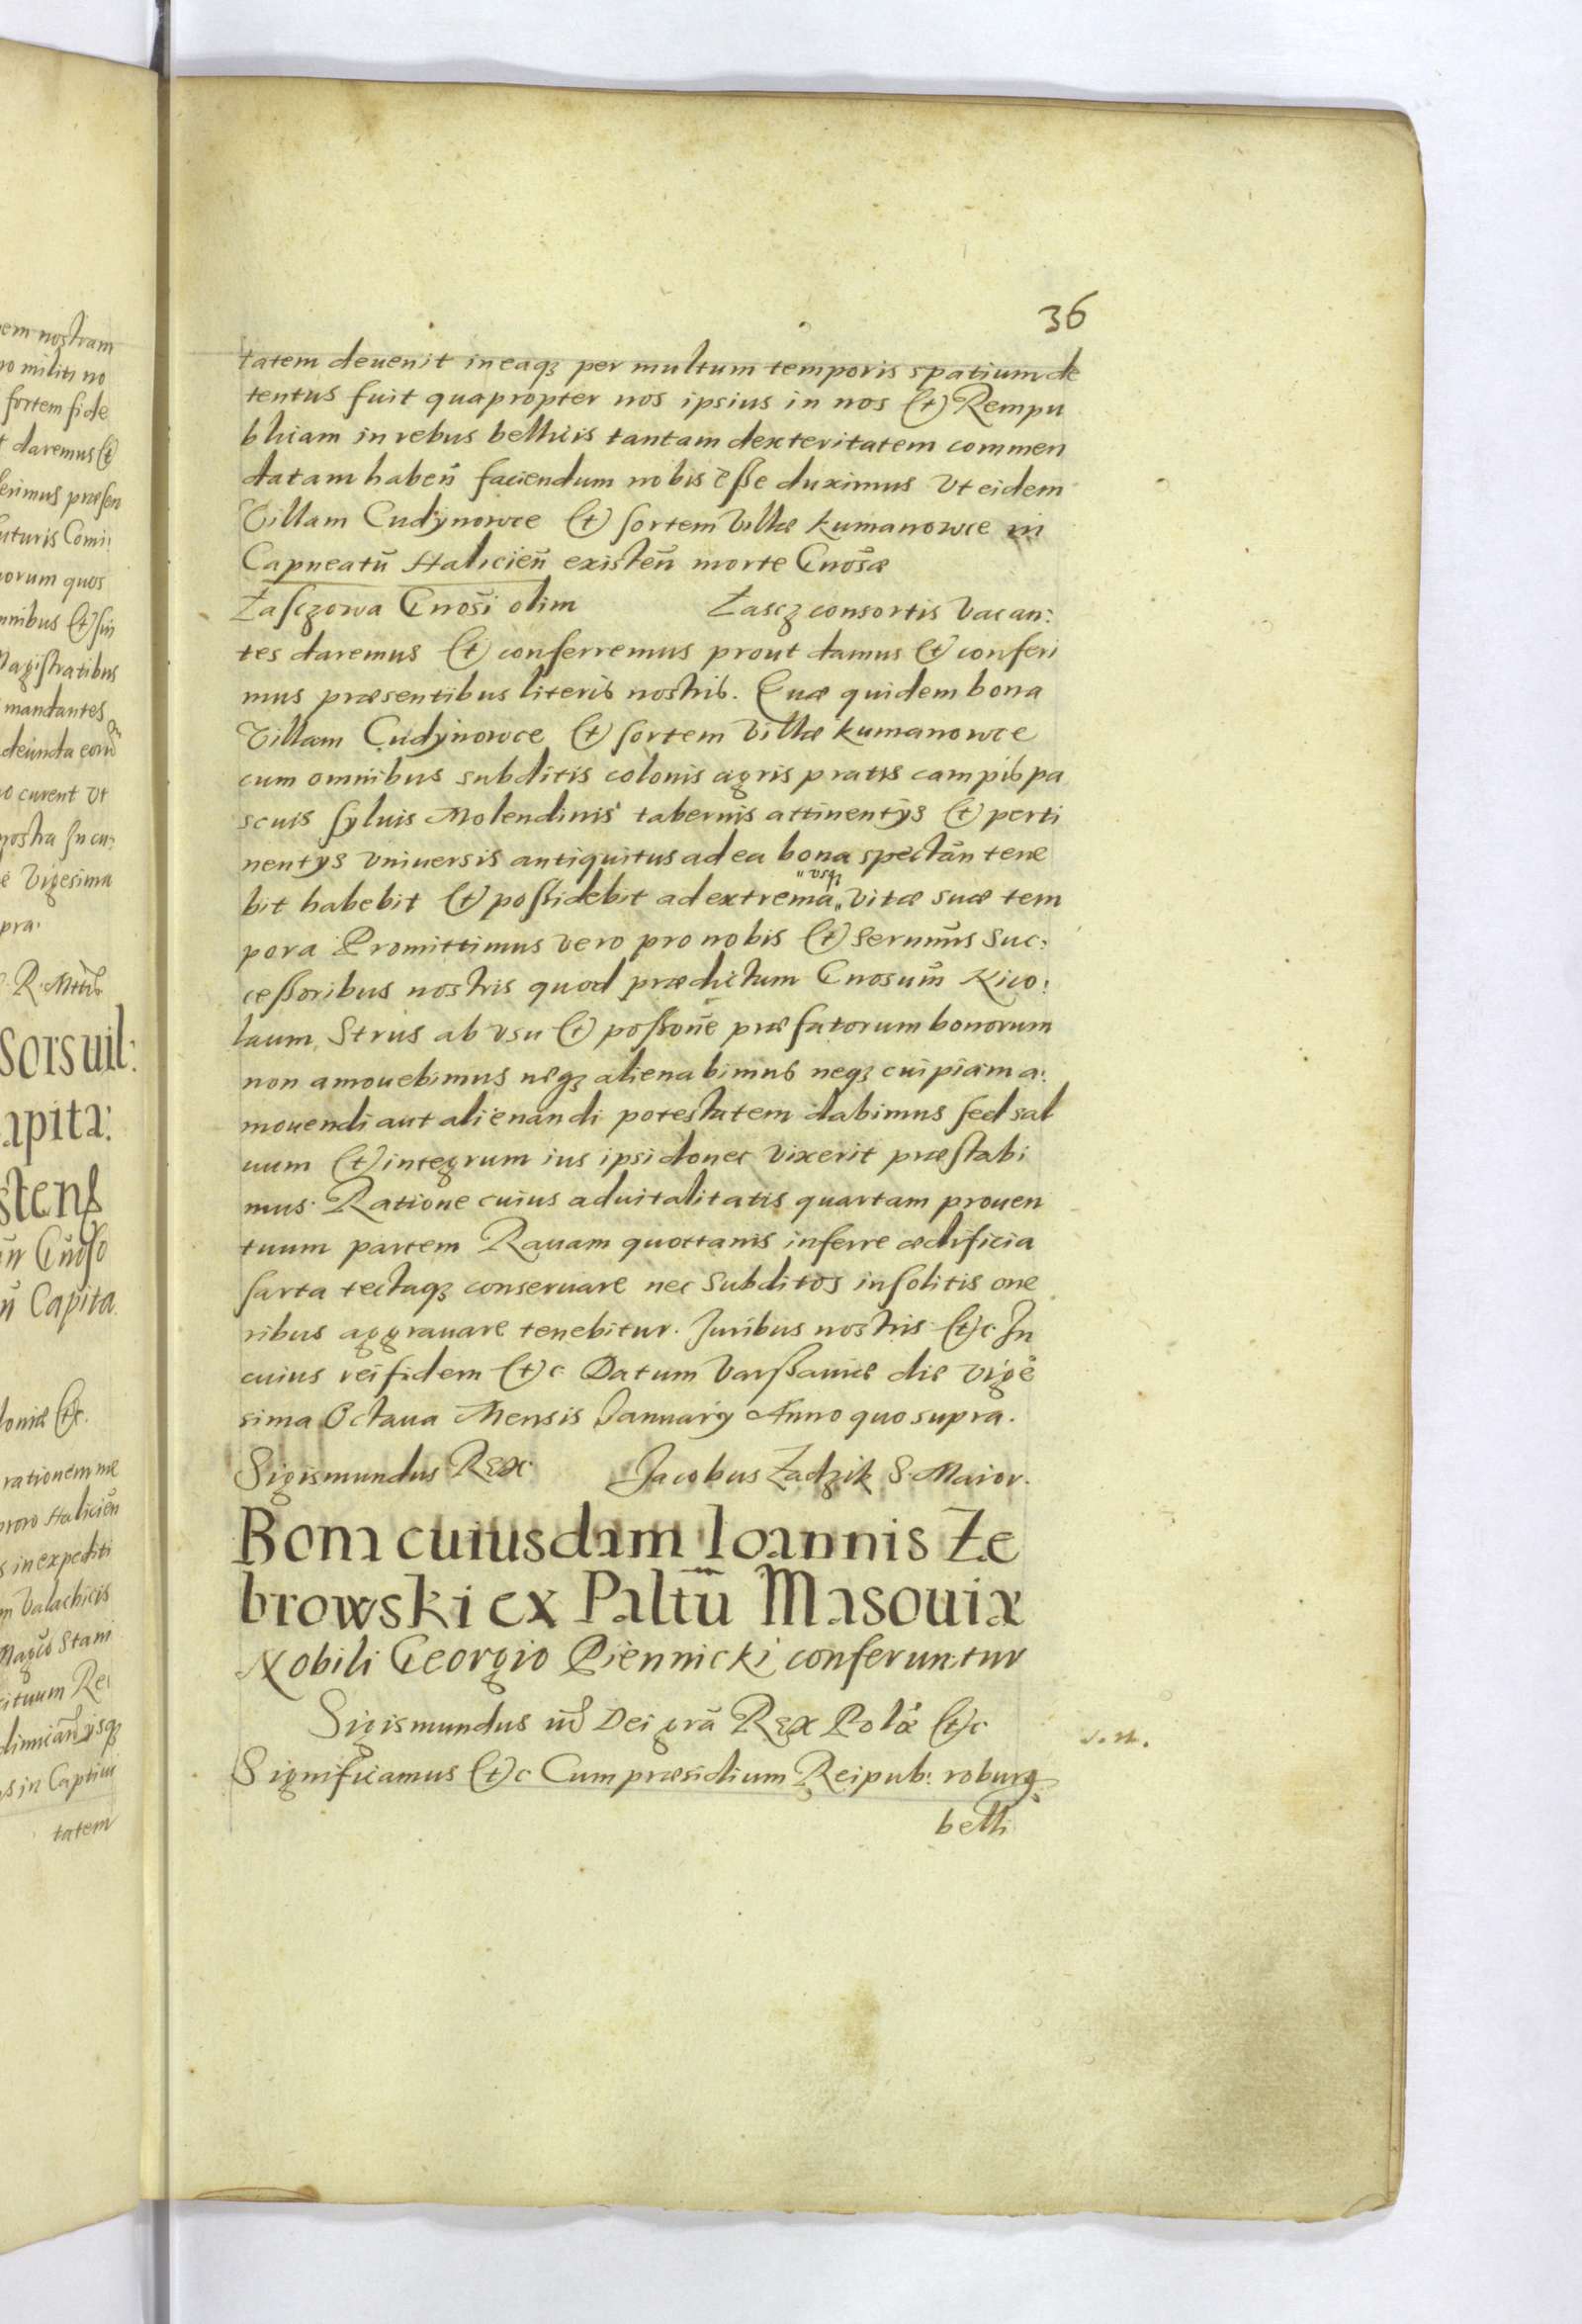 36
tatem deuenit in eaqз per multum temporis spatium de
tentus fuit quapropter nos ipsius in nos (et) Rempu
blicam in rebus bellicis tantam dexteritatem commen
datam haben̄ faciendum nobis eße duximus Vt eidem
Villam Cudynowce (et) sortem Villæ Kumanowce in
Capneatū Halicien̄ existen̄ morte Gnosæ
Łasczowa Gnosi olim Łascz consortis Vacan:
tes daremus (et) conferremus prout damus (et) conferi
mus præsentibus literis nostris. Quæ quidem bona
Villam Cudynowce (et) sortem Villæ Kumanowce
cum omnibus subditis colonis agris pratis campis pa
scuis syluis Molendinis tabernis attinentÿs (et) perti
nentÿs Vniuersis antiquitus ad ea bona spectān tene
bit habebit (et) poßidebit ad extrema „vsqз„ Vitæ suæ tem
pora Promittimus Vero pro nobis (et) Sermīs Suc:
ceßoribus nostris quod prædictum Gnosum̄ Nico:
laum Strus ab Vsu (et) poßon̄e præfatorum bonorum
non amouebimus neqз alienabimus neqз cuipiam a:
mouendi aut alienandi potestatem dabimus sed sal
uum (et) integrum ius ipsi donec Vixerit præstabi
mus. Ratione cuius aduitalitatis quartam prouen
tuum partem Rauam quottanis inferre ædificia
sarta tectaqз conseruare nec Subditos insolitis one
ribus aggrauare tenebitur. Juribus nostris (et)c. In
cuius rei fidem (et)c Datum Varßauiæ die Vige
sima Octaua Mensis Januarÿ Anno quo supra.
Sigismundus Rex. Jacobus Zadzik S. Maior.
Bona cuiusdam Ioannis Ze
browski ex Paltū Masouiæ
Nobili Georgio Piennicki conferuntur
Sigismundus iii9 Dei grā Rex Polæ (et)c
Significamus (et)c Cum præsidium Reipub: roburqз
belli